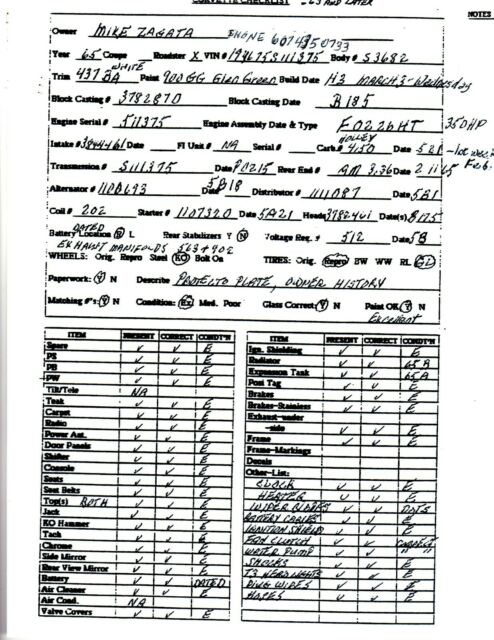 CORVETTE CHECKLIST - 63 AND LATER
NOTES
Owner MIKE ZAGATA PHONE 6074350733
Year 65 Coupe Roadster X VIN# 194675S111375 Body# S3682
WHITE
Trim 437BA Paint 900 GG Glen Green Build Date H3 MARCH 3 - Wednesday
Block Casting # 3782870 Block Casting Date B185
Engine Serial # 511375 Engine Assembly Date & Type F0226HT 350HP
HOLLEY
Intake # 3844461 Date FI Unit # NA Serial # Carb.# 450 Date 521 - 1st week Feb.
Transmission # S111375 Date P0215 Rear End # AM 3.36 Date 2 11 65
Alternator # 1100693 Date 5B18 Distributor # 1111087 Date 5B1
Coil # 202 Starter # 1107320 Date 5A21 Heads 3782461 Date(s) B175
DATED
Battery Location R L Rear Stabilizers Y N Voltage Reg. # 512 Date 5B
EXHAUST MANIFOLDS 563 + 902
WHEELS: Orig. Repro Steel KO Bolt On TIRES: Orig. Repro BW WW RL GL
Paperwork: Y N Describe PROTECTO PLATE, OWNER HISTORY
Matching #'s: Y N Condition: Ex Med. Poor Glass Correct: Y N Paint OK Y N
Excellent
ITEM PRESENT CORRECT CONDT'N
Spare ✓ ✓ E
PS ✓ ✓ E
PB ✓ ✓ E
PW ✓ ✓ E
Tilt/Tele NA
Teak ✓ ✓ E
Carpet ✓ ✓ E
Radio ✓ ✓ E
Power Ant. ✓ ✓ E
Door Panels ✓ ✓ E
Shifter ✓ ✓ E
Console ✓ ✓ E
Seats ✓ ✓ E
Seat Belts ✓ ✓ E
Top(s) BOTH ✓ ✓ E
Jack ✓ ✓ E
KO Hammer ✓ ✓ E
Tach ✓ ✓ E
Chrome ✓ ✓ E
Side Mirror ✓ ✓ E
Rear View Mirror ✓ ✓ E
Battery ✓ ✓ DATED
Air Cleaner ✓ ✓ E
Air Cond. NA
Valve Covers ✓ ✓ E
ITEM PRESENT CORRECT CONDT'N
Ign. Shielding ✓ ✓ E
Radiator ✓ ✓ 65 A
Expansion Tank ✓ ✓ 65A
Posi Tag ✓ ✓ E
Brakes ✓ ✓ E
Brakes-Stainless ✓ ✓ E
Exhaust-under
-side ✓ ✓ E
Frame ✓ ✓ E
Frame-Markings
Decals
Other-List:
CLOCK ✓ ✓ E
HEATER ✓ ✓ E
WIPER BLADES ✓ ✓ DOTS
BATTERY CABLES ✓ ✓ E
IGNITION SHIELD ✓ ✓ E
FAN CLUTCH ✓ ✓ CORRECT
WATER PUMP ✓ ✓ " "
SHOCKS ✓ ✓ E
T3 HEADLIGHTS ✓ ✓ E
PLUG WIRES ✓ ✓ E
HOSES ✓ ✓ E